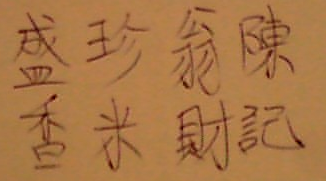 盛珍翁陳
香米財記